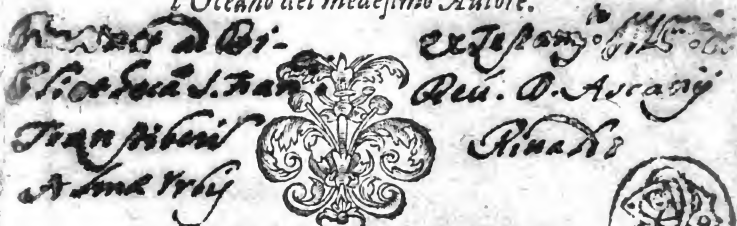 l'Oceano del medesimo Autore.
ad Bi-
bliothecā S. Fran.
Transtiberii
Almæ Vrbis
ex Testam.º
Reū. D. Ascanij
Rinaldi